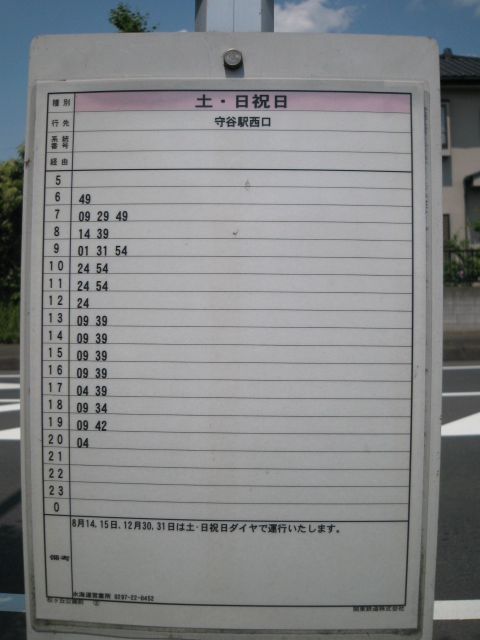 種別 土・日祝日
行先 守谷駅西口
系統番号
経由
5
6 49
7 09 29 49
8 14 39
9 01 31 54
10 24 54
11 24 54
12 24
13 09 39
14 09 39
15 09 39
16 09 39
17 04 39
18 09 34
19 09 42
20 04
21
22
23
0
8月14.15日.12月30.31日は土・日祝日ダイヤで運行いたします。
備考
水海道営業所 0297-22-0452
関東鉄道株式会社